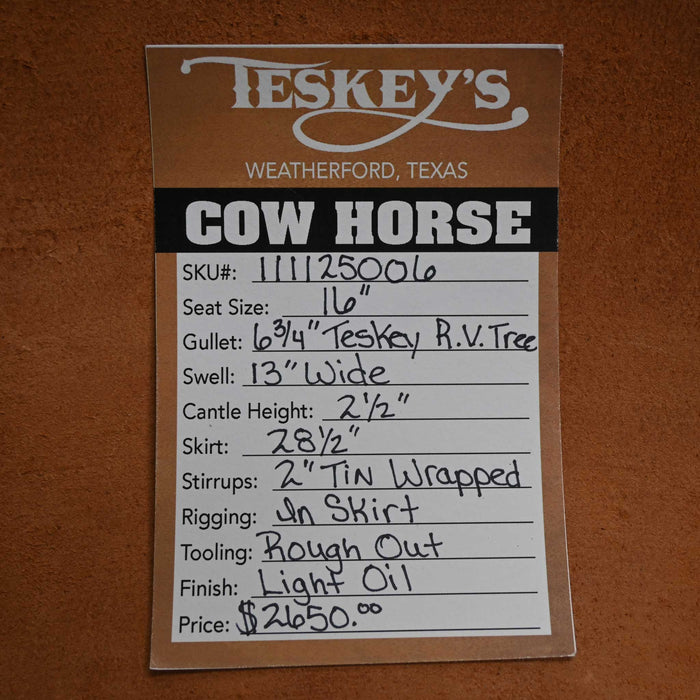 TESKEY'S
WEATHERFORD, TEXAS
COW HORSE
SKU#: 111125006
Seat Size: 16"
Gullet: 6 3/4" Teskey R.V. Tree
Swell: 13" Wide
Cantle Height: 2 1/2"
Skirt: 28 1/2"
Stirrups: 2" Tin Wrapped
Rigging: In Skirt
Tooling: Rough Out
Finish: Light Oil
Price: $2650.00